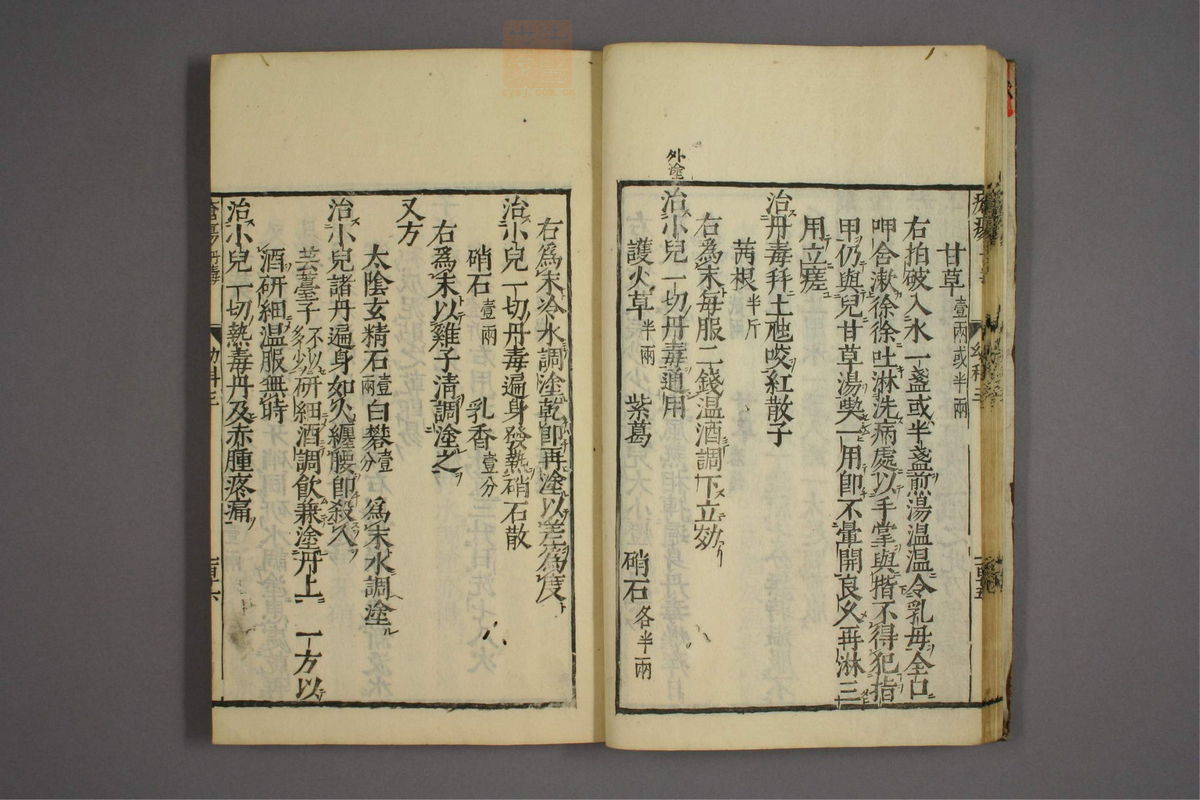 甘草壹兩或半兩
右拍破入水一盞或半盞煎湯温温令乳母全口
呷含漱徐徐吐淋洗病處以手掌與揩不得犯指
甲仍與兒甘草湯喫一用即不暈開良久再淋三
用立瘥
治丹毒幷土虺咬紅散子
茜根半斤
右為末每服二錢温酒調下立効
外塗
治小兒一切丹毒通用
護火草半兩 紫葛 硝石各半兩
右爲末冷水調塗乾即再塗以差爲度
治小兒一切丹毒遍身發熱硝石散
硝石壹兩 乳香壹分
右爲末以雞子清調塗之
又方
太陰玄精石壹兩白礬壹分 爲末水調塗
治小兒諸丹遍身如火纏腰即殺人
芸薹子不以多少研細酒調飲兼塗丹上 一方以
酒研細温服無時
治小兒一切熱毒丹及赤腫疼痛